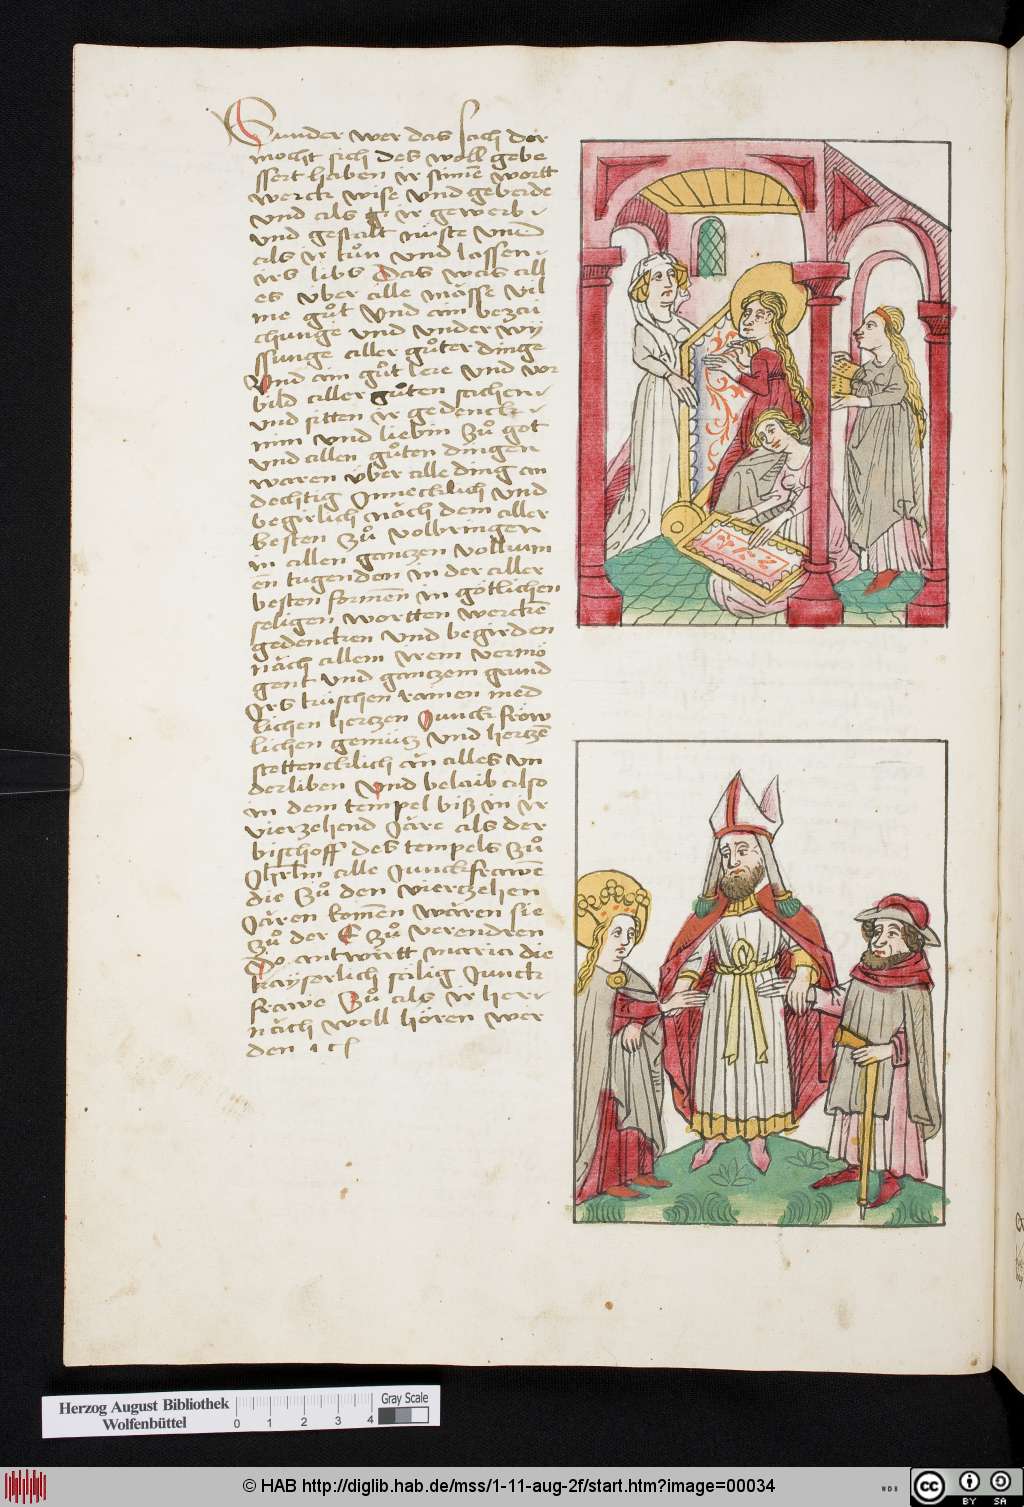 Sunder wer das sach der
mocht sich des woll gebe
ssert haben ir stimē wortt
werck wise vnd geberde
vnd als ir gewerb
vnd gestalt
als ir tůn vnd lassen
irs libs Das was all
es über alle mässe vil
me gůt vnd ain bezai
chunge vnd vnder wy
ssunge aller gůter dinge
Vnd ain gůt lere vnd vor
bild aller gůten sachen
vnd sitten ir gedenck
min vnd liebin zů got
vnd allen gůten dingen
waren über alle ding an
dechtig Innecklich vnd
begirlich näch dem aller
besten zů volbringen
in allen gantzen vollkum
en tugenden in der aller
besten formen in götlichen
seligen wortten werckē
gedencken vnd begirden
näch allem irem vermö
gent vnd gantzem grund
Irs küschen rainen med
lichen hertzen Junckfröw
lichen gemütz vnd hertzē
stettencklich än alles vn
derliben Vnd belaib also
in dem tempel biß in ir
vierzehend Järe als der
bischoff des tempels zů
Jhrlm alle Junckfrawē
die zů den viertzehen
Jären komen wären sie
zů der E zů verendren
Do antwürtt maria die
kaÿserlich sälig Junck
frawe Zů als ir her
näch woll hören wer
den
Herzog August Bibliothek
Wolfenbüttel
0 1 2 3 4
Gray Scale
© HAB http://diglib.hab.de/mss/1-11-aug-2f/start.htm?image=00034
WDB
cc BY SA